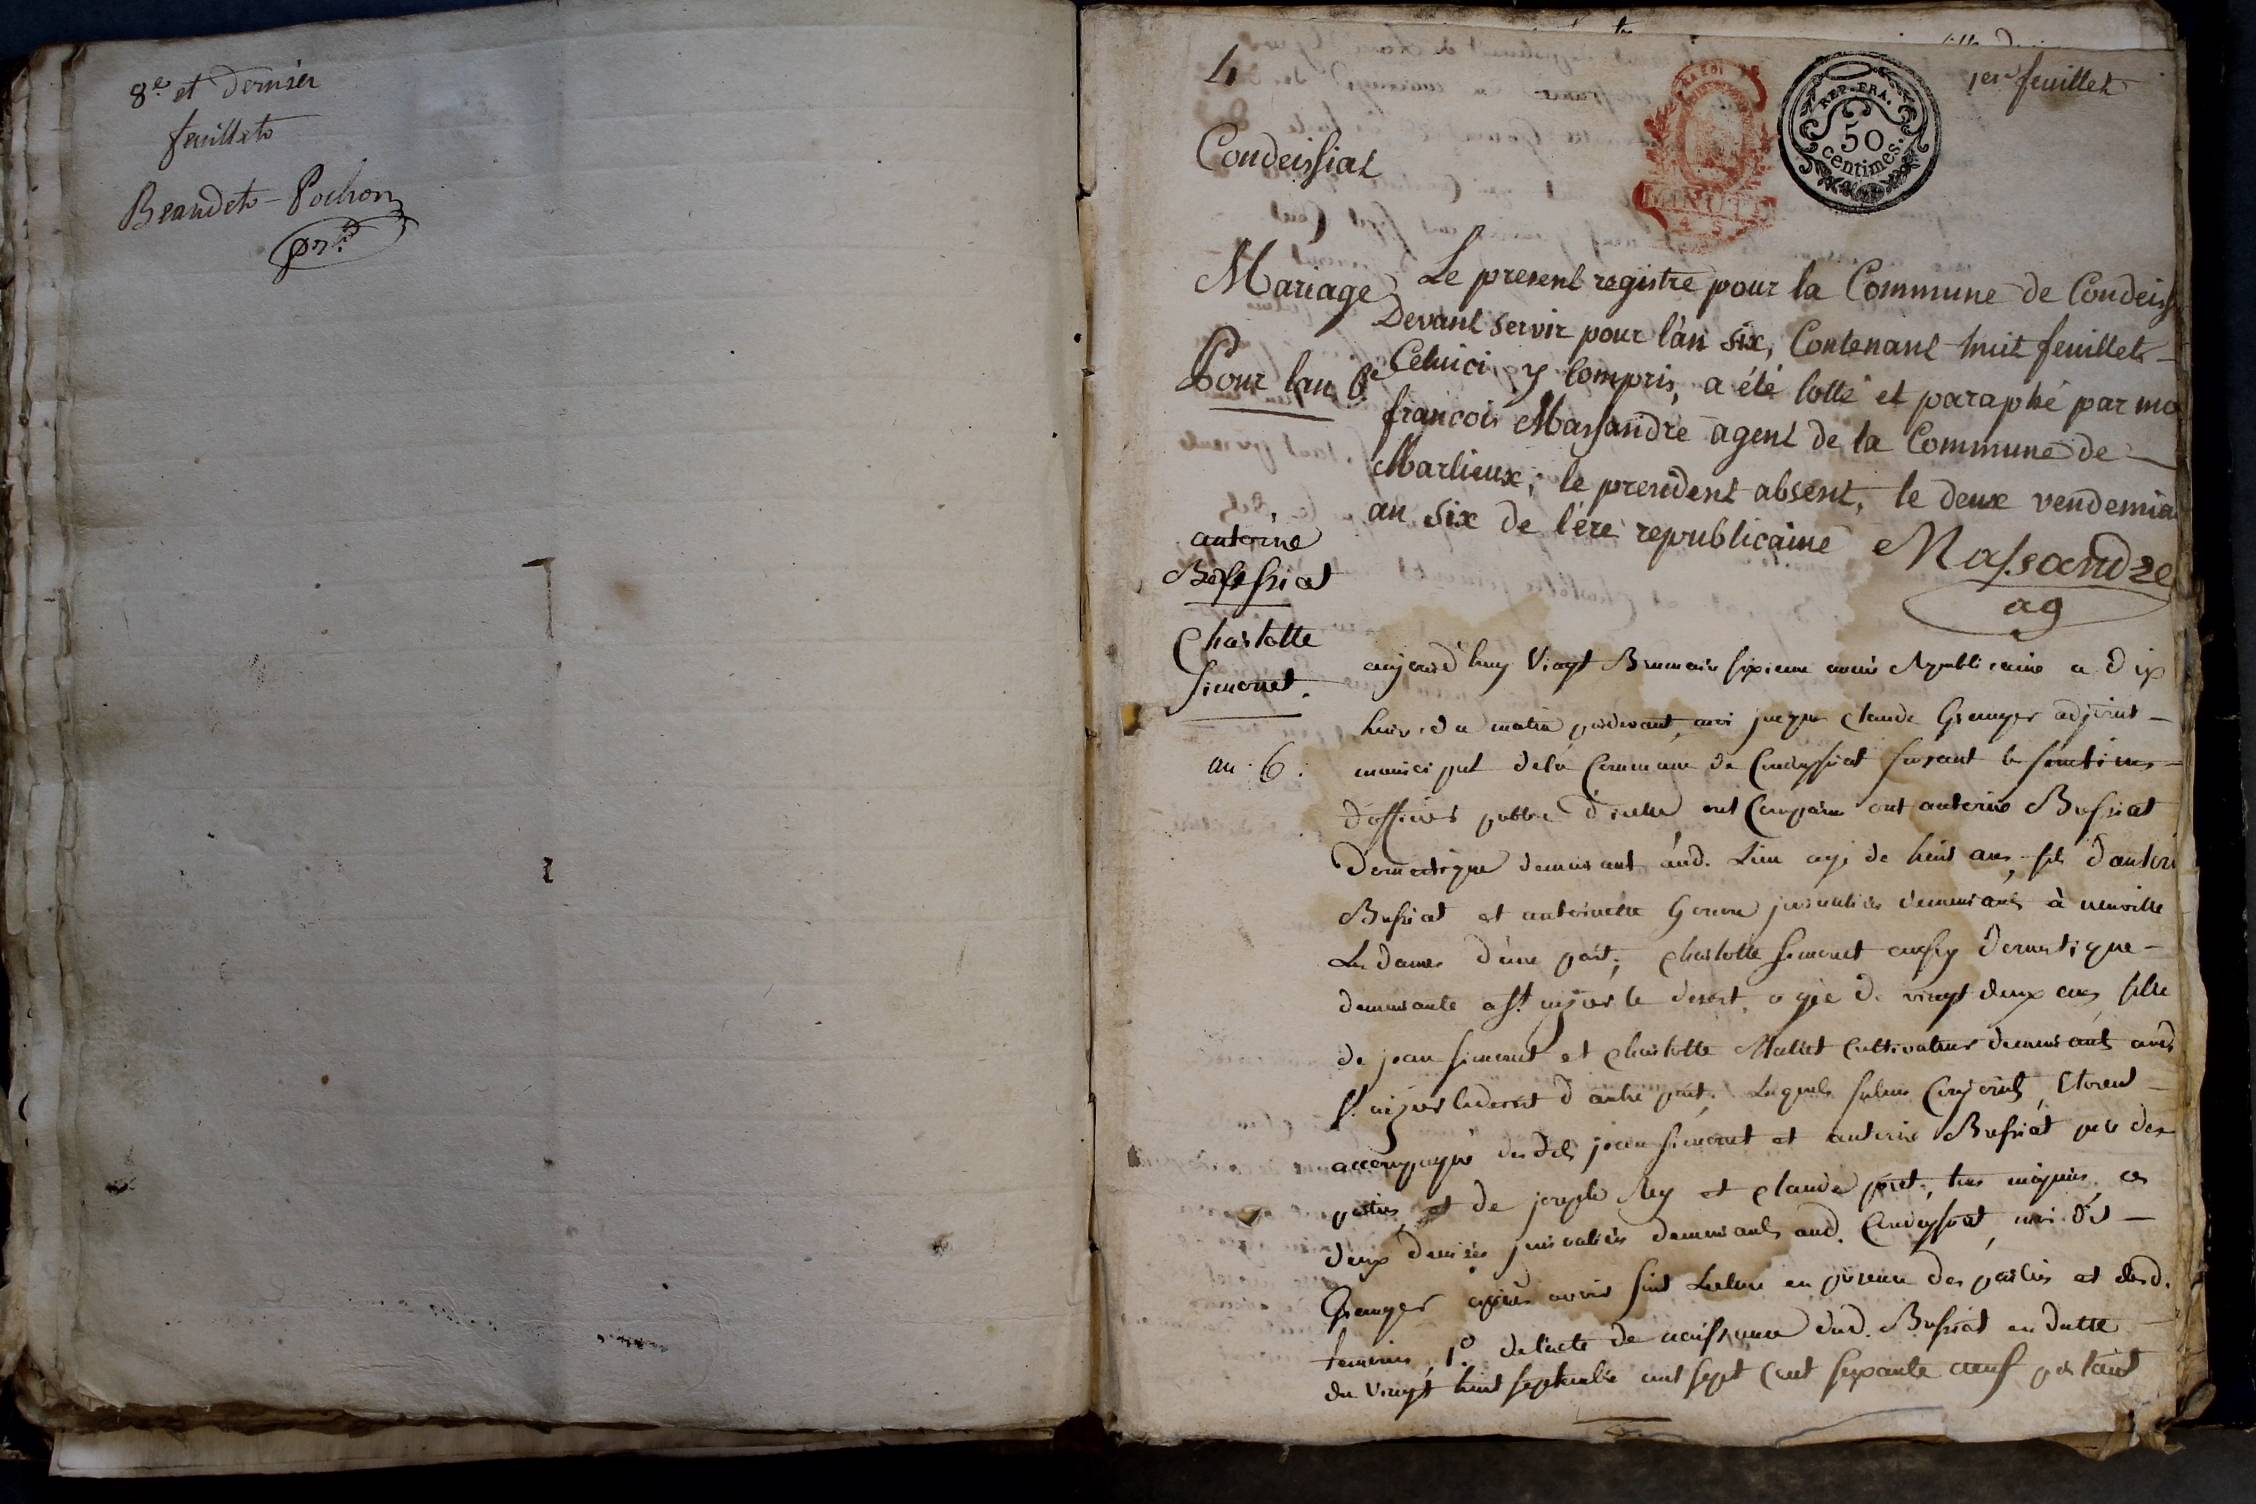 8e et dernier
feuillets
Beaudet-Pochon
prt
4
1er feuillet
REP. FRA.
50
centimes.
MINUTE
Condeissiat
Mariage
Pour lan 6e
Le present registre pour la Commune de Condeiss
Devant servir pour l'an six, Contenant huit feuillets
Celuici y Compris, a été Cotté et paraphé par mo
francois Massandre agent de la Commune de
Marlieux, le president absent, le deux vendemia
an six de l'ère republicaine Massandre
ag
antoine
Bessiat
Charlotte
Simonet.
an 6.
aujourd'huy Vingt Brumaire sixieme année Republicaine a dix
heures du matin pardevant moi jacque Claude Granger adjoint
municipal dela Commune de Condeyssiat faisant le fonctions
d'officier public d'icelle ont Comparu antoine Bussiat
Domestique demeurant aud. Lieu agé de huit ans, fils d'antoi
Bussiat et antoinette journaliers demeurants à neuville
Les dames d'une part, Charlotte Simonet aussy domestique
demeurante a St. nizier le desert, agée de vingt deux ans, fille
de jean Simonet et Charlotte Mallet Cultivateurs demeurants aud.
St. nizier ledesert d'autre part. Lesquels futurs Conjoints, étoient
accompagné desdits jean Simonet et antoine Bussiat pere des
parties, et de joseph Rey et Claude ces
deux derniers journaliers demeurants aud. Condeyssiat, moi dit
Granger après avoir fait Lecture en presence des parties et desd.
temoins, 1º. de l'acte de naissance dud. Bussiat en datte
du Vingt huit septembre mil sept Cent soixante neuf portant